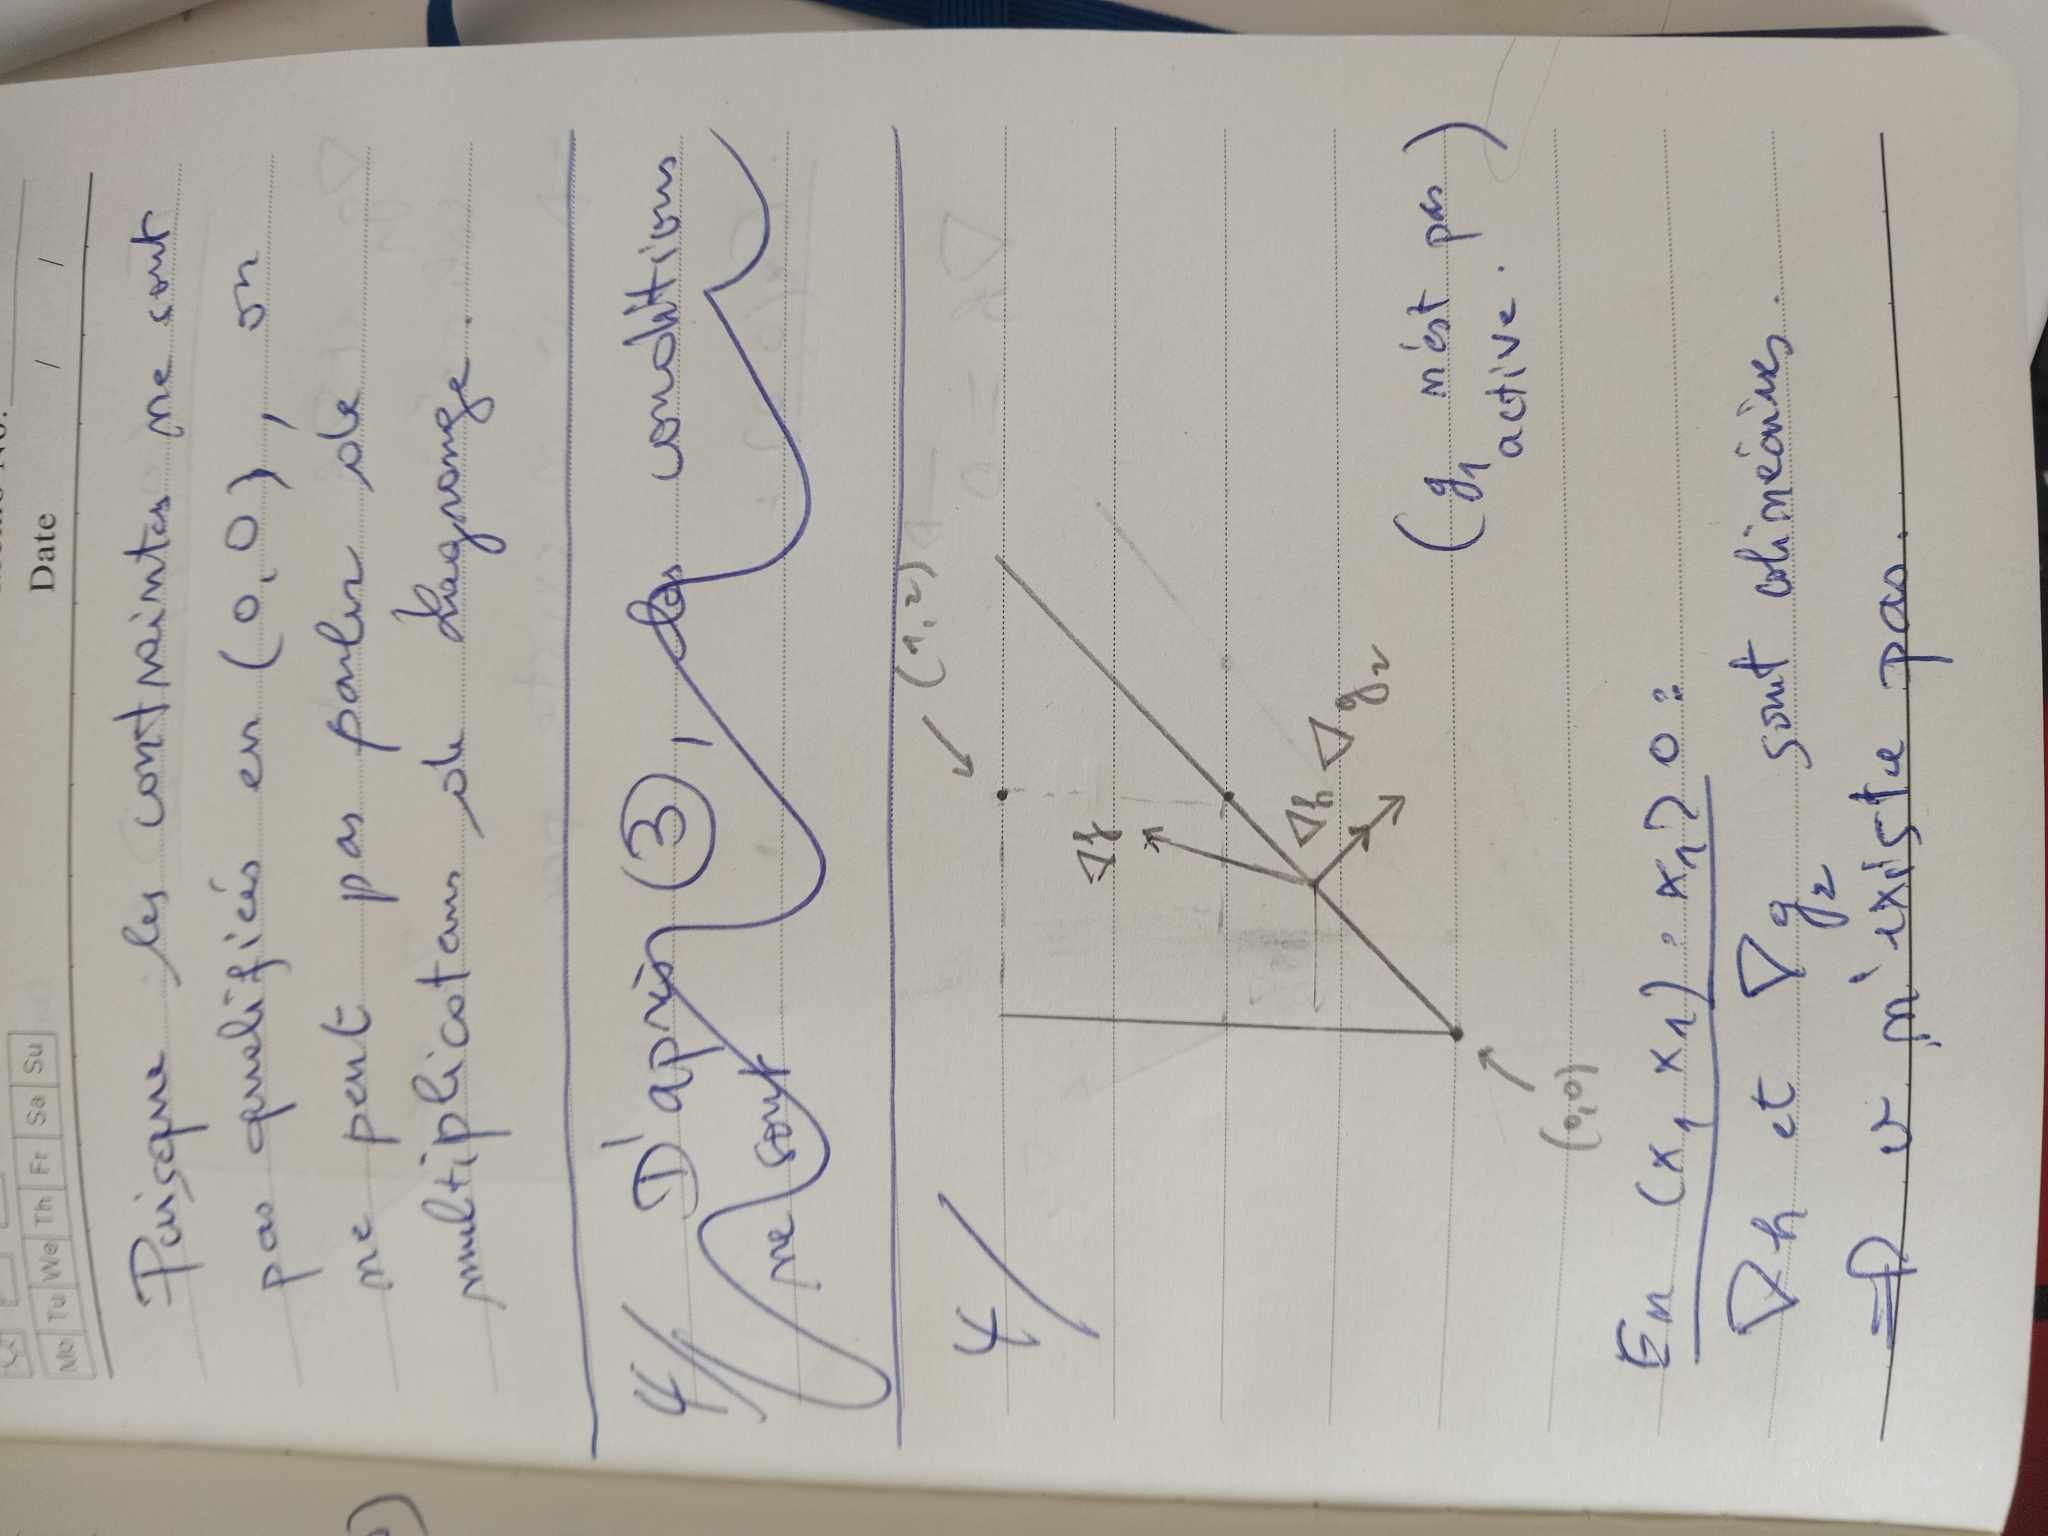 Mo Tu We Th Fr Sa Su
Date / /
Puisque les contraintes ne sont
pas qualifiées en (0,0), on
ne peut pas parler de
multiplicateurs de Lagrange.
4/ D'après (3), les conditions
ne sont
4/
(1,2)
∇f
∇h ∇g₂
(g₁ n'est pas
active.)
(0,0)
En (x₁ x₁) : x₁ > 0 :
∇h et ∇g₂ sont colinéaires.
⇒ v n'existe pas.